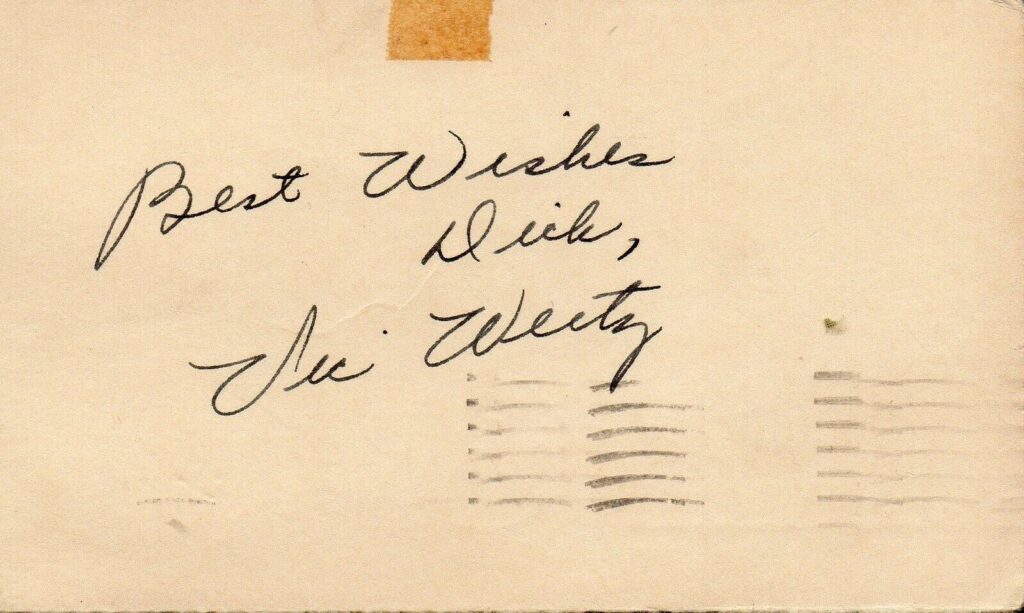 Best Wishes
Dick,
Vic Wertz